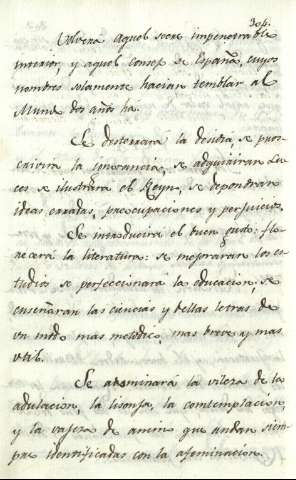 304.
Volverá aquel secreto impenetrable
interior, y aquel Consejo de España, cuyos
nombres solamente hacian temblar al
Mundo dos años ha.
Se desterrará la desidia, se pros-
crivira la ignorancia, se adquiriran Lu-
ces se ilustrara el Reyno, se depondran
ideas erradas, preocupaciones y perjuicios.
Se introducira el buen gusto: flo-
recerá la literatura: se mejoraran los es-
tudios se perfeccionará la educacion se
enseñaran las ciencias y bellas letras de
un modo mas metodico, mas breve y mas
util.
Se abominará la vileza de la
adulacion, la lisonja, la contemplacion,
y la vajeza de animo que andan siem-
pre identificadas con la afeminacion.